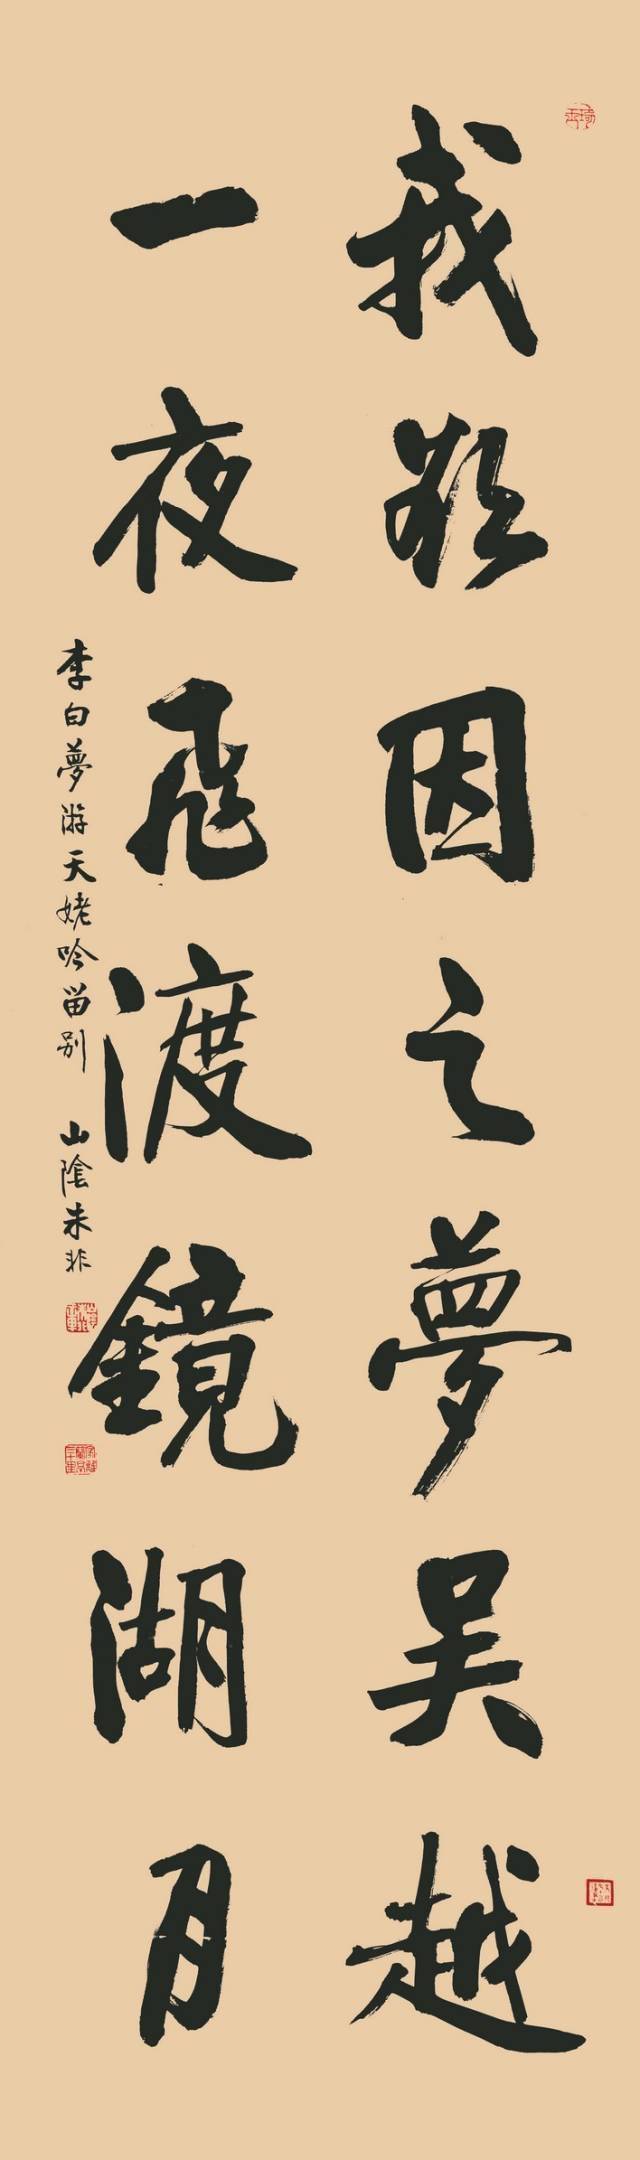 我欲因之夢吴越
一夜飛渡鏡湖月
李白夢游天姥吟留别 山陰朱非